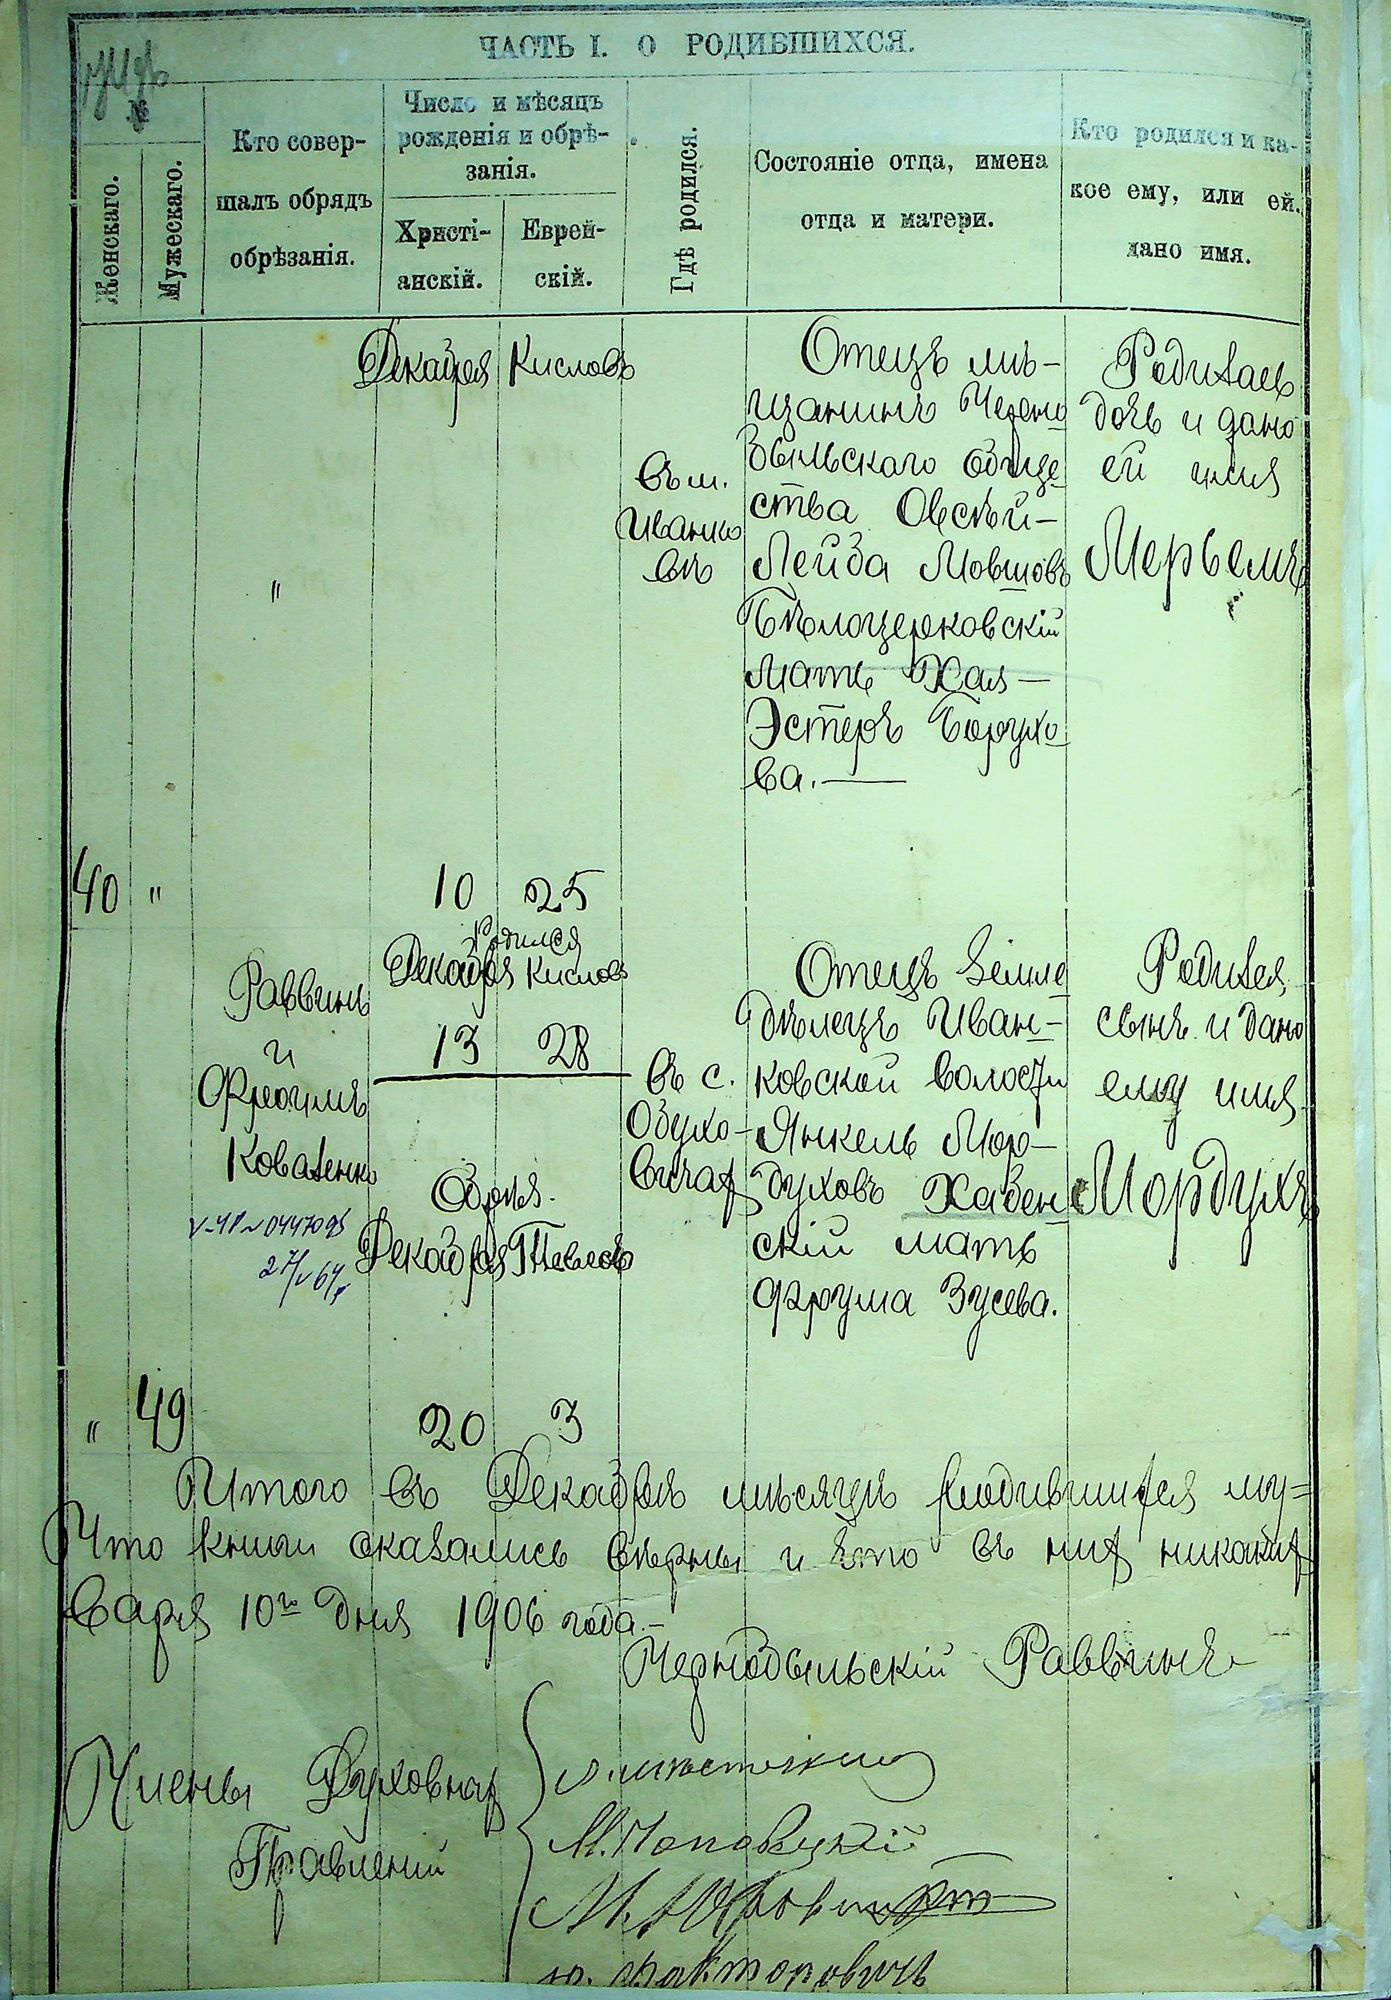 ЧАСТЬ I. О РОДИВШИХСЯ.
№
Женскаго.
Мужескаго.
Кто совер-
шалъ обрядъ
обрѣзанія.
Число и мѣсяцъ
рожденія и обрѣ-
занія.
Христі-
анскій.
Еврей-
скій.
Гдѣ родился.
Состояніе отца, имена
отца и матери.
Кто родился и ка-
кое ему, или ей.
дано имя.
40
"
"
Декабря
10
Кислевъ
25
въ м.
Иванко
вѣ
Отецъ мѣ-
щанинъ Черно
быльскаго обще-
ства Овсѣй-
Лейба Мовшовъ
Бѣлоцерковскій
мать Хая-
Эстеръ Борухо-
ва.
Родилась
дочь и дано
ей имя
Мерьемъ
"
49
Раввинъ
и
Фроимъ
Коваленко
27/V 64 г.
Родился
Декабря Кислев
13 28
Обрѣз.
Декабря Тевесъ
20 3
въ с.
Обухо-
вичах
Отецъ Земле-
дѣлецъ Иван-
ковской волости
Янкель Мор-
духовъ Хабен-
скій мать
Фрума Зусева.
Родился
сынъ и дано
ему имя
Мордухъ
Итого въ Декабрѣ мѣсяцѣ родившихся му=
Что книги оказались вѣрны и что въ них никаких
варя 10го дня 1906 года.-
Чернобыльскій Раввинъ
Члены Духовнаг
Правленій
М. Поповицкій
Ю. Факторовичъ